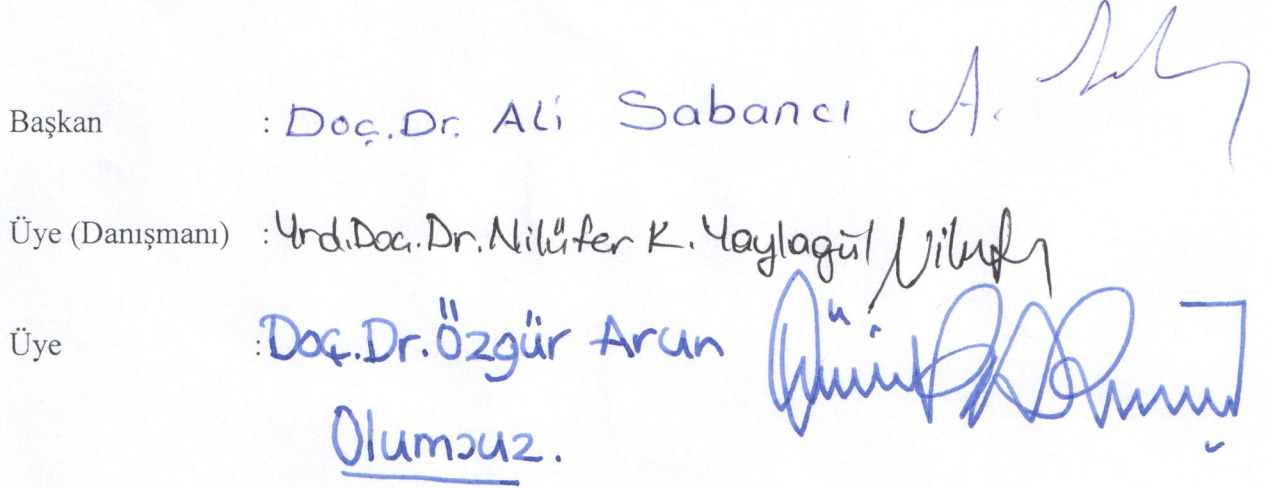 Başkan : Doç.Dr. Ali Sabancı A.
Üye (Danışmanı) : Yrd.Doç.Dr. Nilüfer K. Yaylagül
Üye : Doç.Dr. Özgür Arun
Olumsuz.